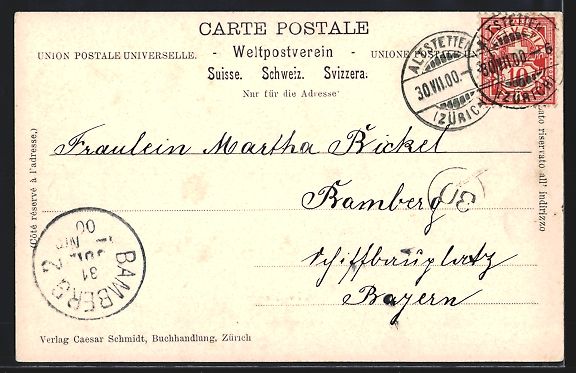 CARTE POSTALE
UNION POSTALE UNIVERSELLE. - Weltpostverein - UNIONE POSTALE
Suisse. Schweiz. Svizzera.
Nur für die Adresse
ALTSTETTEN
30.VII.00.–
(ZÜRICH)
ALTSTETTEN
30.VII.00.– 6
(ZÜRICH)
10
(Côté réservé à l'adresse.)
riservato all' indirizzo
Fräulein Martha Bickel
Bamberg
30
Schiffbauplatz
Bayern
BAMBERG 2
31
JUL
00
Verlag Caesar Schmidt, Buchhandlung, Zürich